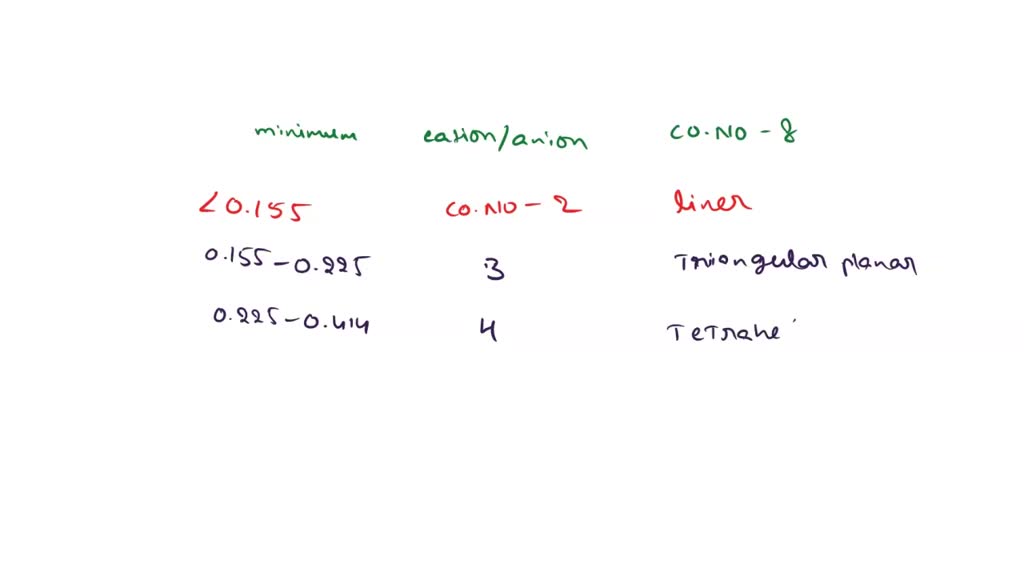 minimum cation/anion CO.NO - 8
<0.155 CO.NO - 2 liner
0.155 - 0.225 3 Triangular planar
0.225 - 0.414 4 Tetrahe